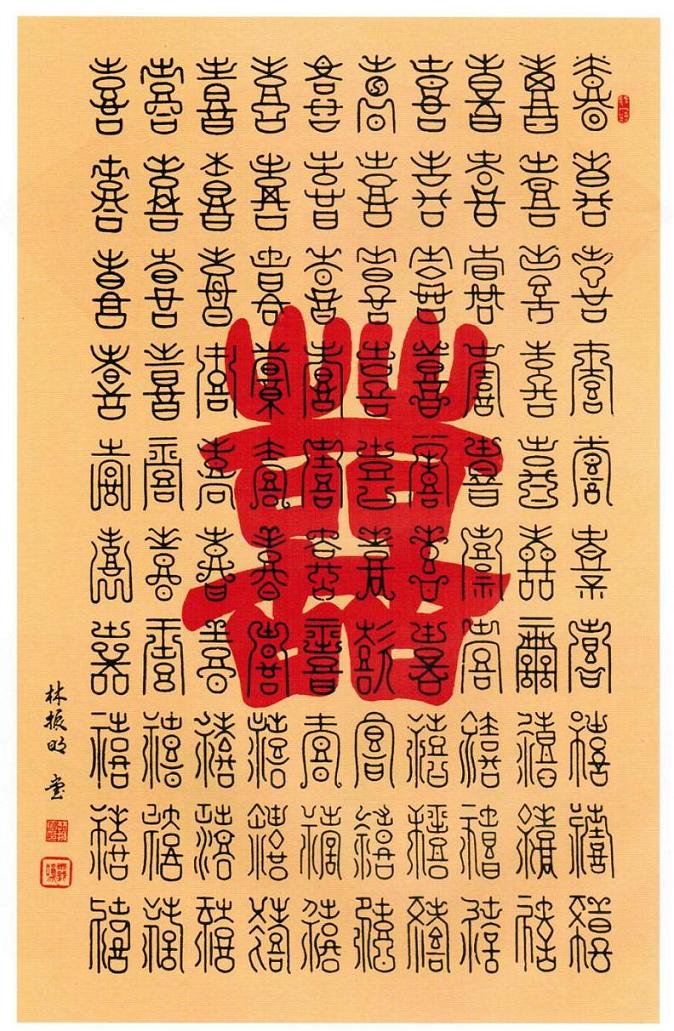 囍
喜喜喜喜喜喜喜禧禧禧
喜喜喜喜喜喜喜禧禧禧
喜喜喜喜喜喜喜禧禧禧
喜喜喜喜喜喜喜禧禧禧
喜喜喜喜喜喜喜喜禧禧
喜喜喜喜喜喜喜喜禧禧
喜喜喜喜喜喜喜禧禧禧
喜喜喜喜喜喜喜禧禧禧
喜喜喜喜喜喜喜禧禧禧
喜喜喜喜喜喜喜禧禧禧
林振明